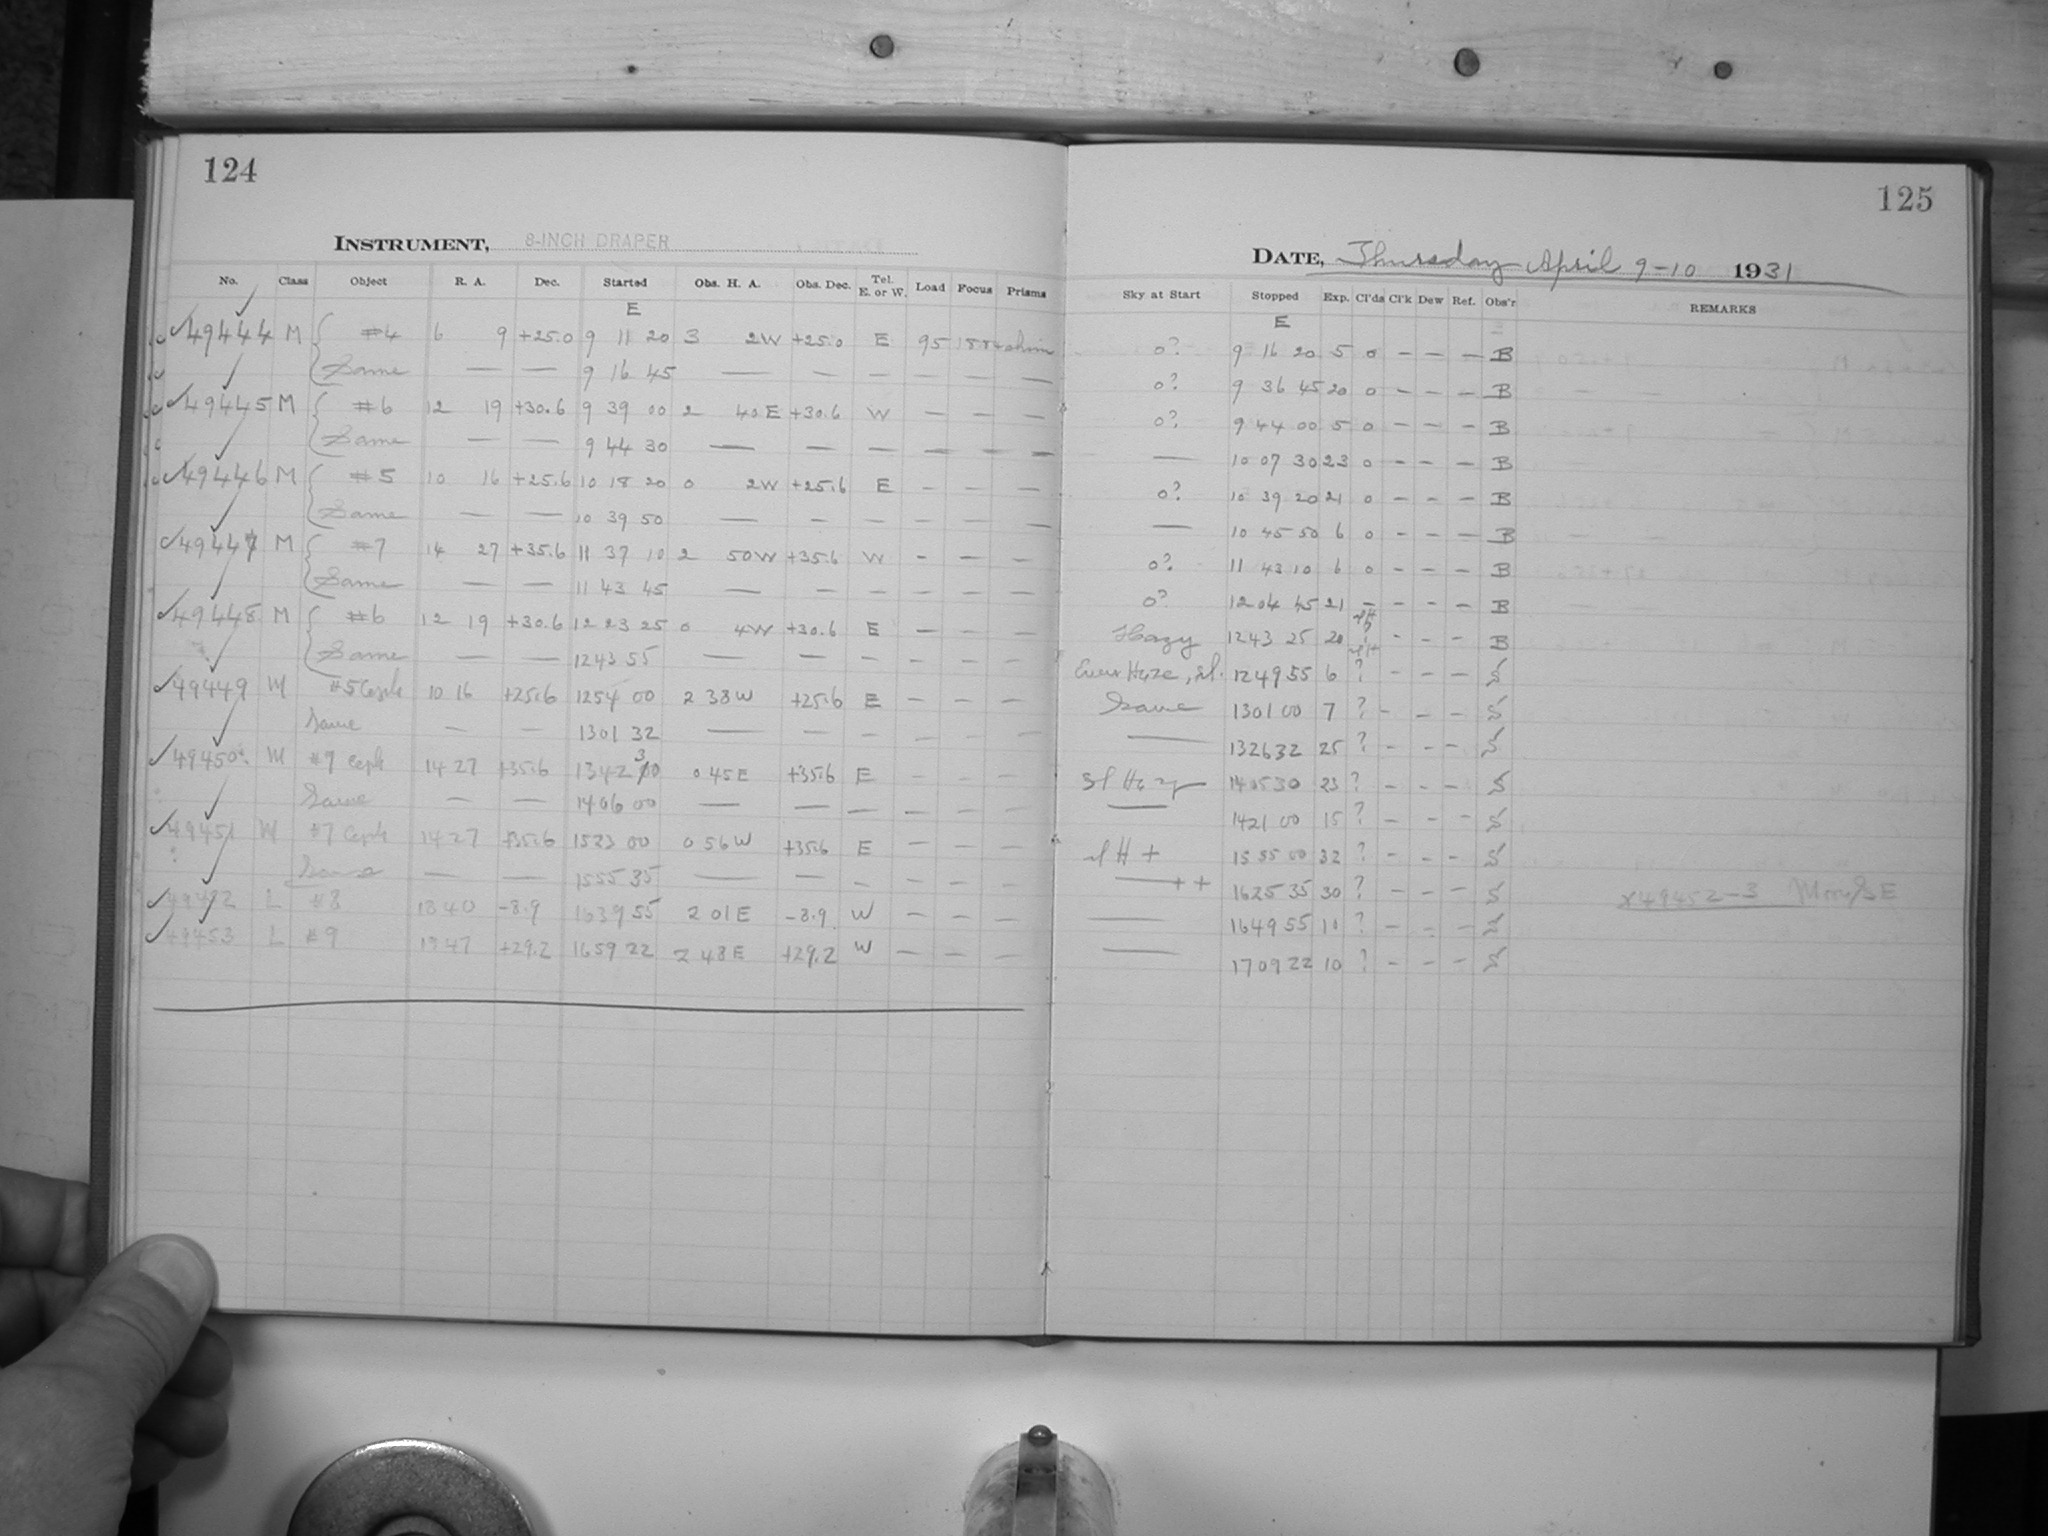 124
INSTRUMENT, 8-INCH DRAPER
No. Class Object R. A. Dec. Started Obs. H. A. Obs. Dec. Tel. E. or W. Load Focus Prisms
E
49444 M #4 6 9 +25.0 9 11 20 3 2W +25.0 E 95
Same — — 9 16 45 — — — — — —
49445 M #6 12 19 +30.6 9 39 00 2 40E +30.6 W — — —
Same — — 9 44 30 — — — — — —
49446 M #5 10 16 +25.6 10 18 20 0 2W +25.6 E — — —
Same — — 10 39 50 — — — — — —
49447 M #7 14 27 +35.6 11 37 10 2 50W +35.6 W — — —
Same — — 11 43 45 — — — — — —
49448 M #6 12 19 +30.6 12 23 25 0 4W +30.6 E — — —
Same — — 12 43 55 — — — — — —
49449 M #5 Ceph 10 16 +25.6 12 54 00 2 38W +25.6 E — — —
Same — — 13 01 32 — — — — — —
49450 M #7 Ceph 14 27 +35.6 13 42 30 0 45E +35.6 E — — —
Same — — 14 06 00 — — — — — —
49451 M #7 Ceph 14 27 +35.6 15 23 00 0 56W +35.6 E — — —
Same — — 15 55 35 — — — — — —
49452 L #8 18 40 -8.9 16 39 55 2 01E -8.9 W — — —
49453 L #9 +29.2 16 59 22 2 48E +29.2 W — — —
125
DATE, Thursday April 9-10 1931
Sky at Start Stopped Exp. Cl'ds Cl'k Dew Ref. Obs'r REMARKS
E
0? 9 16 20 5 0 — — — B
0? 9 36 45 20 0 — — — B
0? 9 44 00 5 0 — — — B
— 10 07 30 23 0 — — — B
0? 10 39 20 21 0 — — — B
— 10 45 50 6 0 — — — B
0? 11 43 10 6 0 — — — B
0? 12 04 45 21 — — — — B
Hazy 12 43 25 20 — — — B
Even Haze, sl. 12 49 55 6 ? — — — S
Same 13 01 00 7 ? — — — S
— 13 26 32 25 ? — — — S
Sl Hazy 14 05 30 23 ? — — — S
— 14 21 00 15 ? — — — S
sl H + 15 55 00 32 ? — — — S
— ++ 16 25 35 30 ? — — — S x49452-3
— 16 49 55 10 ? — — — S
— 17 09 22 10 ? — — — S